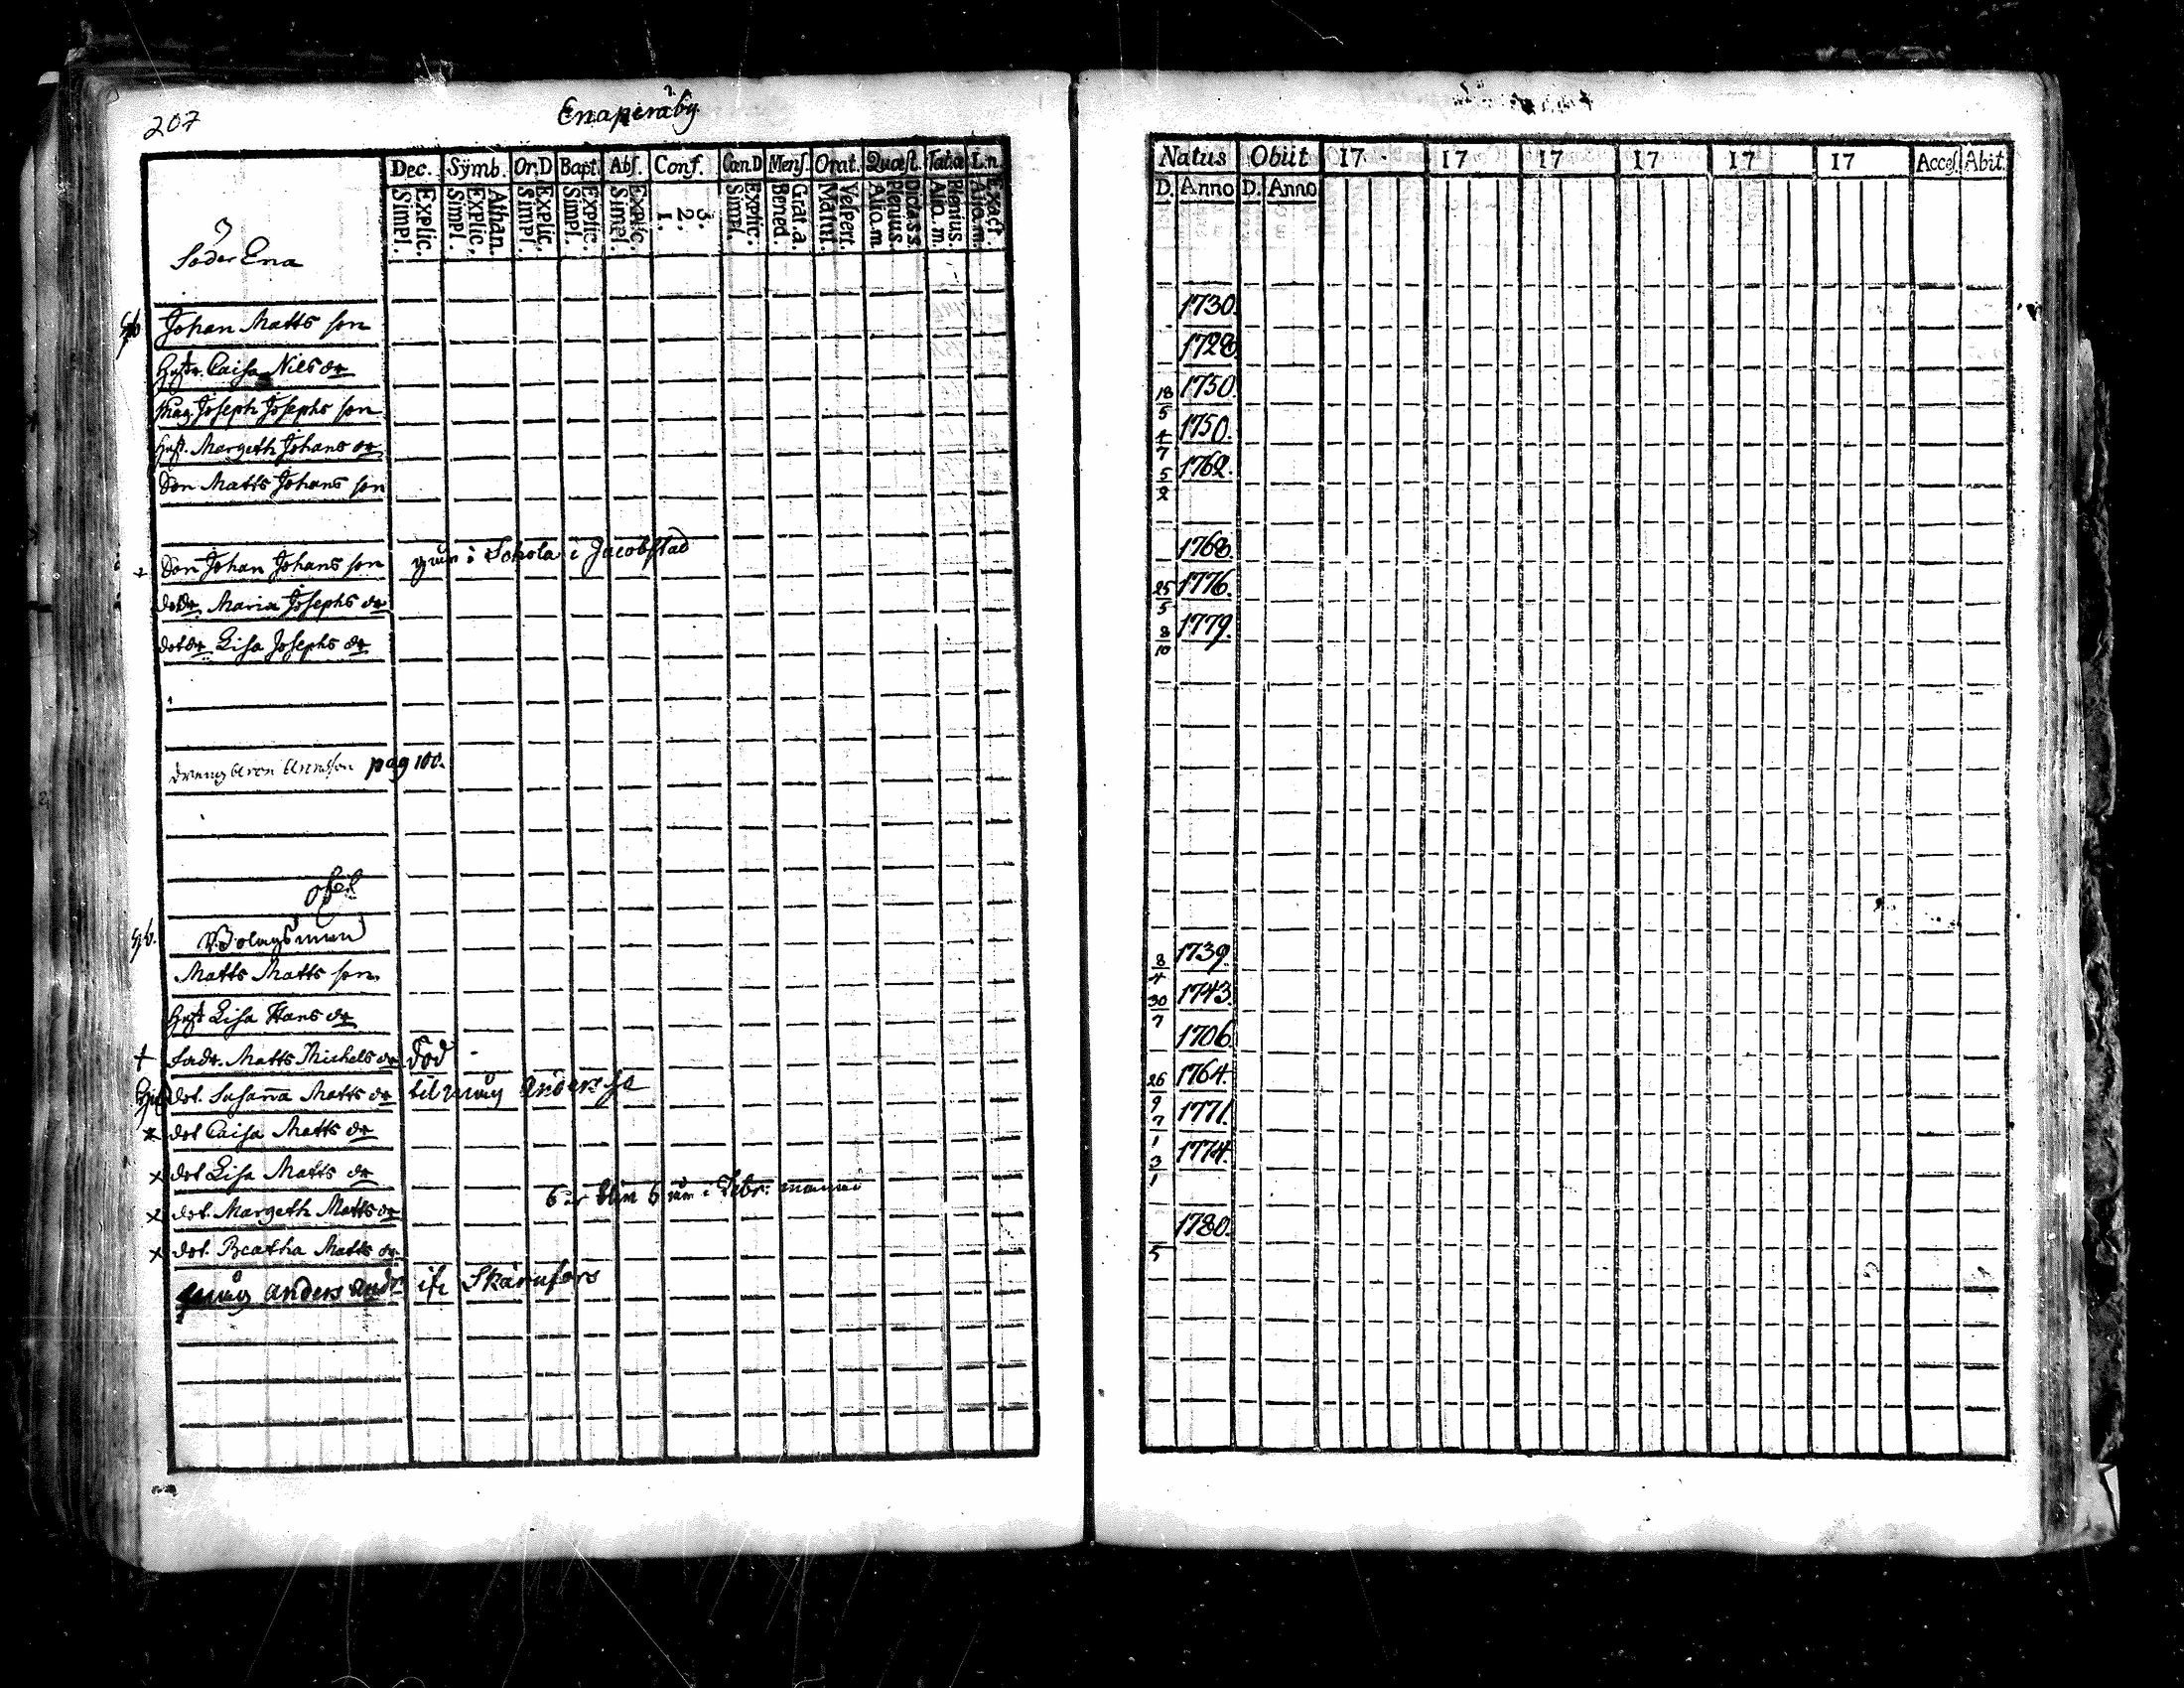 207
Enaperäby.
Dec. Sÿmb. Or.D Bapt. Abs. Conf. Cæn.D Mens. Orat. Quæst. Tatiæ L.n.
Simpl. Explic. Simpl. Explic. Athan. Simpl. Explic. Simpl. Explic. Simpl. Explic. 1. 2. 3. Simpl. Explic. Bened. Grat.a. Matut. Vespert. Aliq.m. Plenius. Dicta s.s. Aliq.m. Plenius. Aliq.m. Exact.
Natus Obiit 17 17 17 17 17 17 Acces. Abit.
D. Anno D. Anno
Söder Ena
Johan Matts son 1730.
Hust. Caisa Nils dr 1728.
Mag Joseph Josephs son 18/5 1750.
Hust. Margeth Johans dr 4/7 1750.
Son Matts Johans son 5/2 1762.
Son Johan Johans son i Schola i Jacobstad 1768.
dotdr Maria Josephs dr 25/5 1776.
dotdr Lisa Josephs dr 8/10 1779.
dräng Aron pag 100.
Bolagsman
Matts Matts son 8/4 1739.
Hust Lisa Hans dr 30/7 1743.
† Matts Michels dr Död 1706.
dot. Susanna Matts dr til måg Anders 26/9 1764.
dot Caisa Matts dr 7/1 1771.
x dot Lisa Matts dr 3/1 1774.
x dot. Margeth Matts dr 6 år blir 6 i Febr:
x dot. Beatha Matts dr 5 1780.
måg Anders Andr